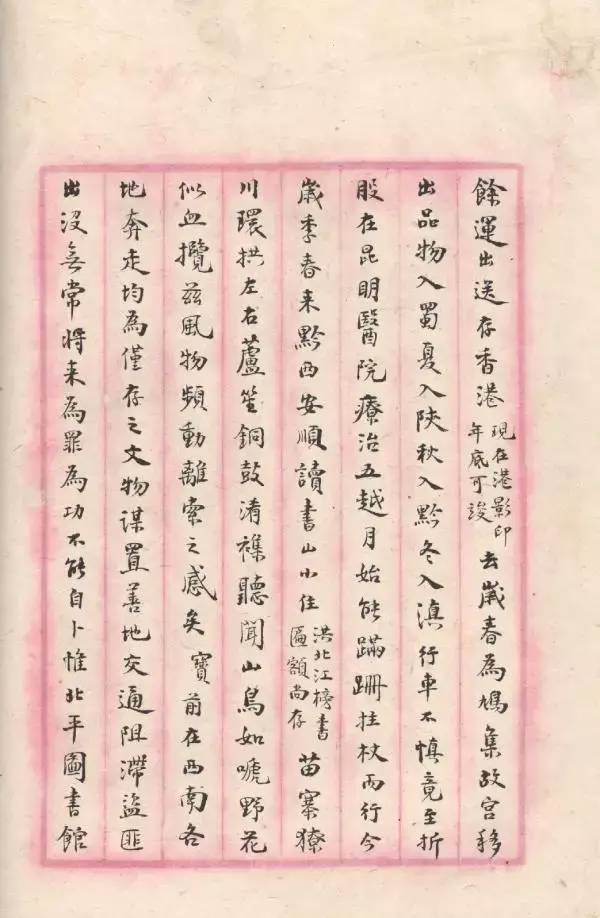 餘運出送存香港現在港影印年底可竣去歲春為鳩集故宮移
出品物入蜀夏入陝秋入黔冬入滇行車不慎竟至折
股在昆明醫院療治五越月始能蹣跚拄杖而行今
歲季春来黔西安順讀書山小住洪北江榜書匾額尚存苗寨獠
川環拱左右蘆笙銅鼓淆襍聽聞山鳥如唬野花
似血攬茲風物頻動離索之感矣寶前在西南各
地奔走均為僅存之文物謀置善地交通阻滯盜匪
出沒無常將来為罪為功不能自卜惟北平圖書館